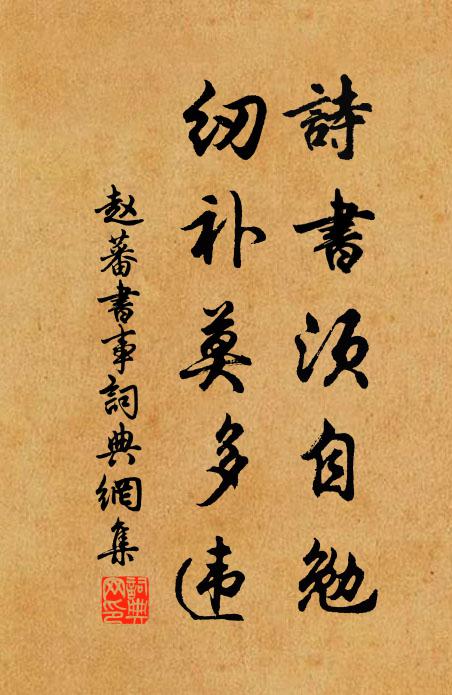 詩書須自勉
紉补莫多违
赵蕃書事詞典網集
詞典网印